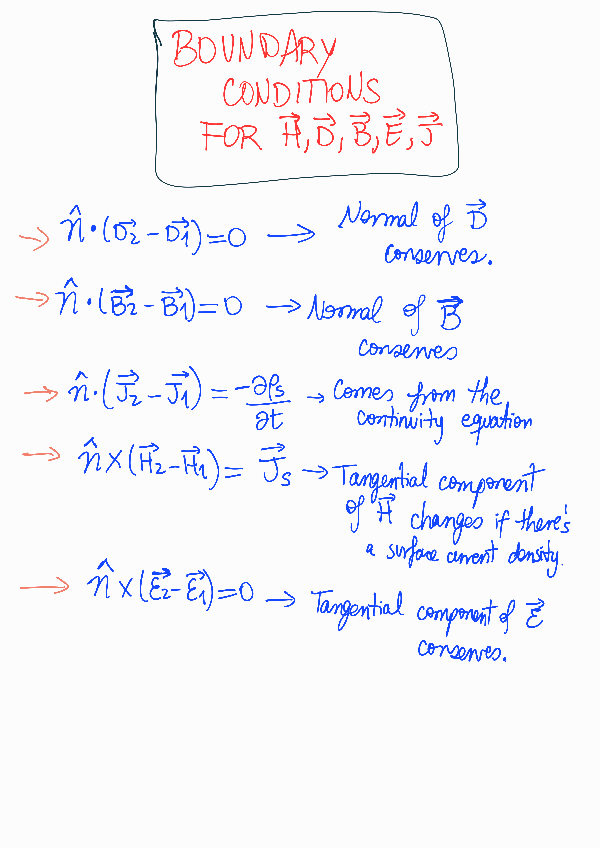 BOUNDARY
CONDITIONS
FOR H⃗, D⃗, B⃗, E⃗, J⃗
→ n̂·(D⃗2 − D⃗1) = 0 → Normal of D⃗
conserves.
→ n̂·(B⃗2 − B⃗1) = 0 → Normal of B⃗
conserves
→ n̂·(J⃗2 − J⃗1) = −∂ρs/∂t → Comes from the
continuity equation
→ n̂×(H⃗2 − H⃗1) = J⃗s → Tangential component
of H⃗ changes if there's
a surface current density.
→ n̂×(E⃗2 − E⃗1) = 0 → Tangential component of E⃗
conserves.